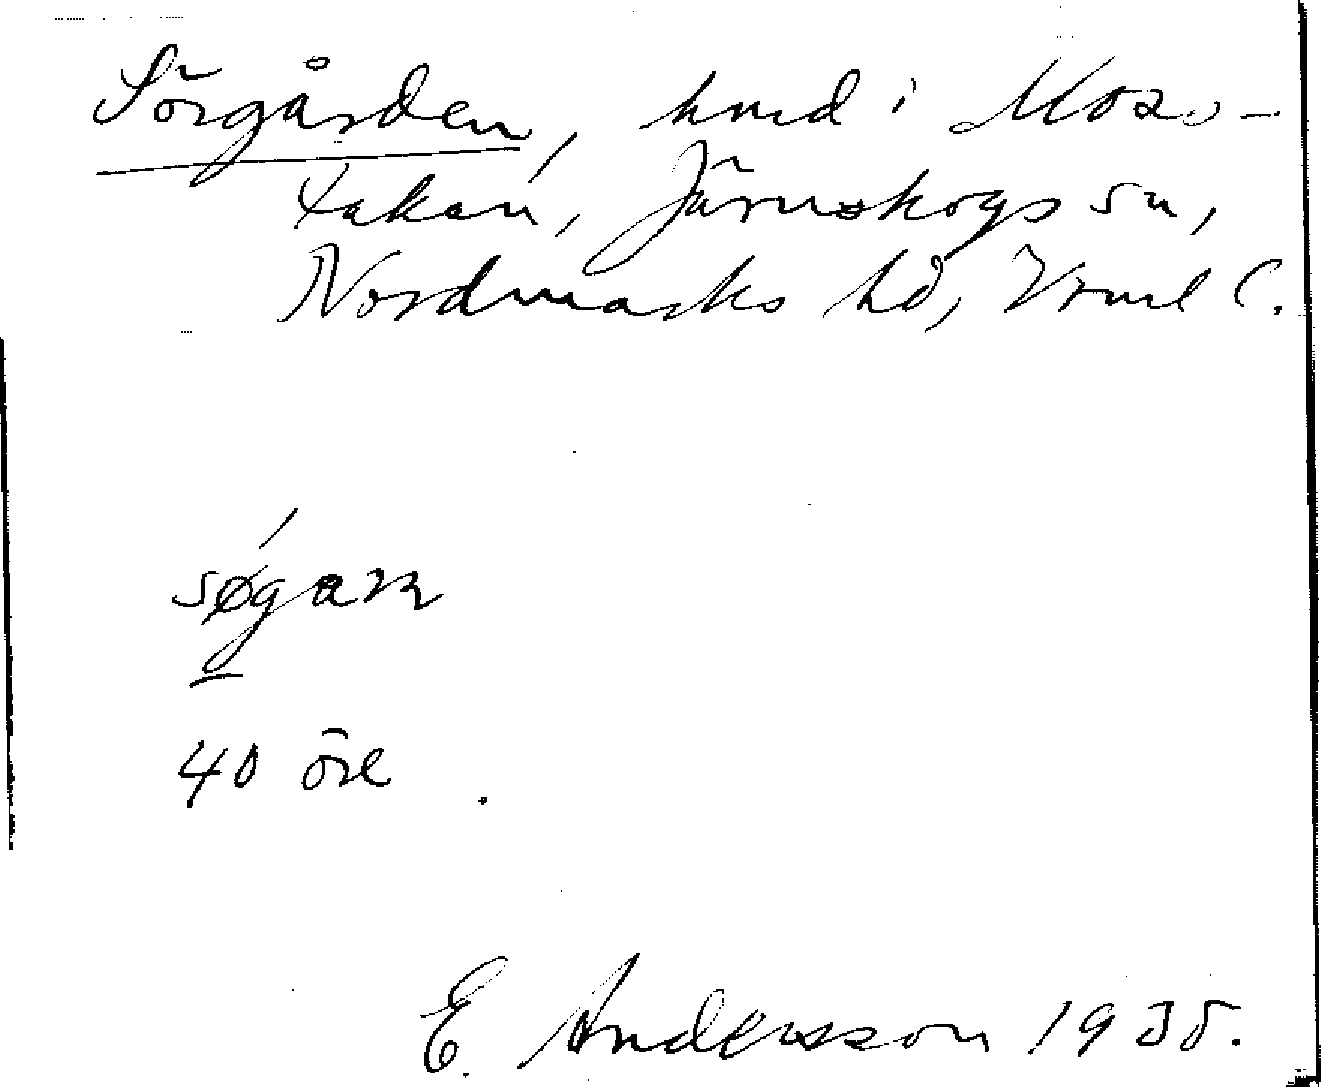 Sörgården, hmd i Moss-
takan, Järnskogs sn,
Nordmarks hd, Vrml l.
søgaɳ
40 öre
E. Andersson 1935.